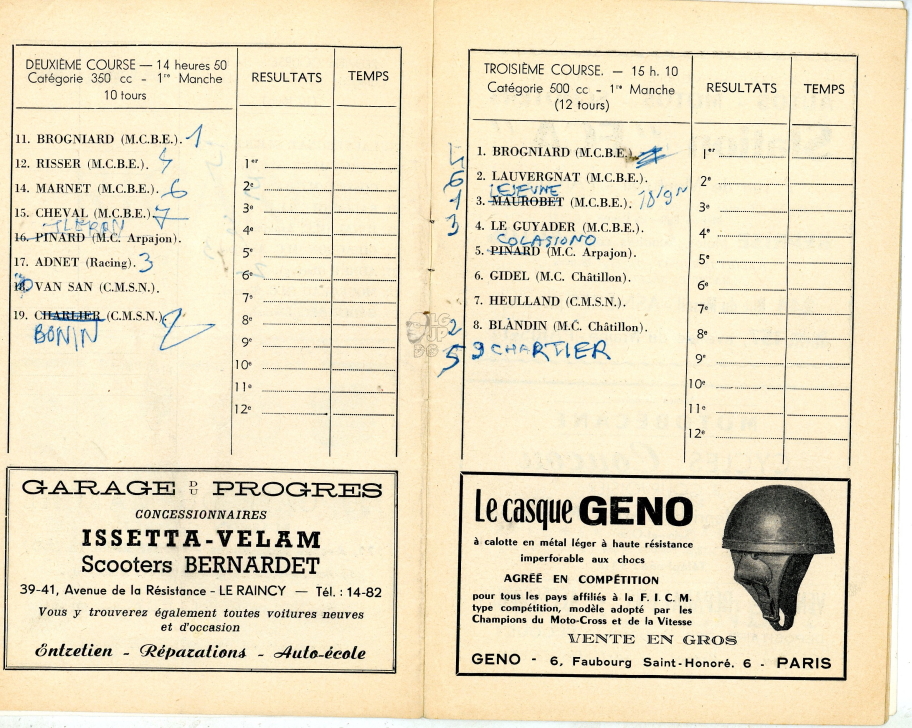 DEUXIÈME COURSE — 14 heures 50
Catégorie 350 cc - 1re Manche
10 tours
RESULTATS
TEMPS
11. BROGNIARD (M.C.B.E.). 1
12. RISSER (M.C.B.E.).
14. MARNET (M.C.B.E.). 6
15. CHEVAL (M.C.B.E.) 7
16. PINARD (M.C. Arpajon).
17. ADNET (Racing). 3
18. VAN SAN (C.M.S.N.).
19. CHARLIER (C.M.S.N.). 2
BONIN
1er
2e
3e
4e
5e
6e
7e
8e
9e
10e
11e
12e
GARAGE DU PROGRES
CONCESSIONNAIRES
ISSETTA-VELAM
Scooters BERNARDET
39-41, Avenue de la Résistance - LE RAINCY — Tél. : 14-82
Vous y trouverez également toutes voitures neuves
et d'occasion
Entretien - Réparations - Auto-école
TROISIÈME COURSE. — 15 h. 10
Catégorie 500 cc - 1re Manche
(12 tours)
RESULTATS
TEMPS
1. BROGNIARD (M.C.B.E.).
6 2. LAUVERGNAT (M.C.B.E.).
LEJEUNE
1 3. MAUROBET (M.C.B.E.).
3 4. LE GUYADER (M.C.B.E.).
COLASIONO
5. PINARD (M.C. Arpajon).
6. GIDEL (M.C. Châtillon).
7. HEULLAND (C.M.S.N.).
2 8. BLANDIN (M.C. Châtillon).
5 9 CHARTIER
1er
2e
3e
4e
5e
6e
7e
8e
9e
10e
11e
12e
Le casque GENO
à calotte en métal léger à haute résistance
imperforable aux chocs
AGRÉÉ EN COMPÉTITION
pour tous les pays affiliés à la F. I. C. M.
type compétition, modèle adopté par les
Champions du Moto-Cross et de la Vitesse
VENTE EN GROS
GENO - 6, Faubourg Saint-Honoré. 6 - PARIS